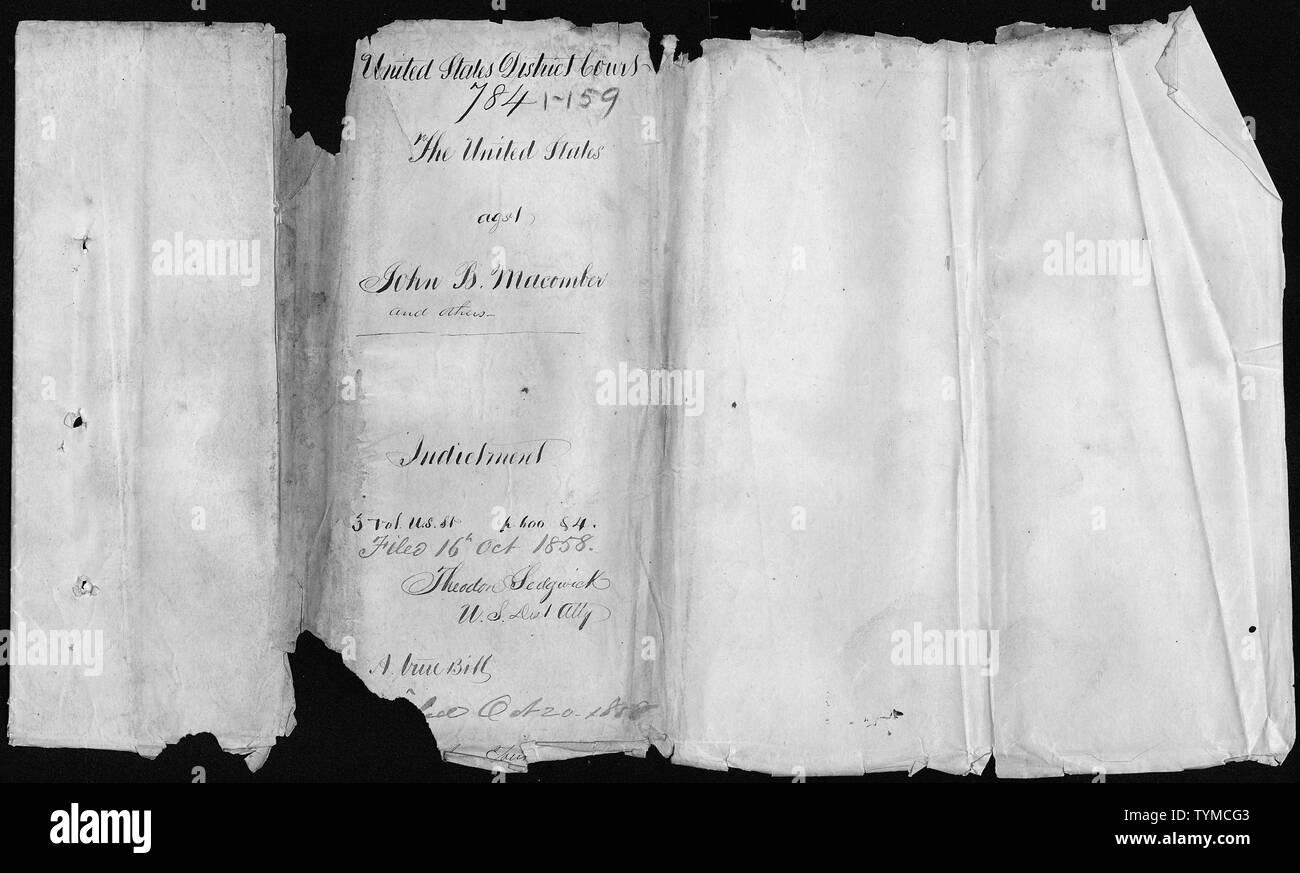 United States District Court
784 1-159
The United States
agst
John B. Macomber
and others
Indictment
5 Vol. U.S. St p 600 § 4.
Filed 16th Oct 1858.
Theodore Sedgwick
U. S. Dist Atty
A true Bill
Oct 20 1858
alamy
Image ID: TYMCG3
www.alamy.com